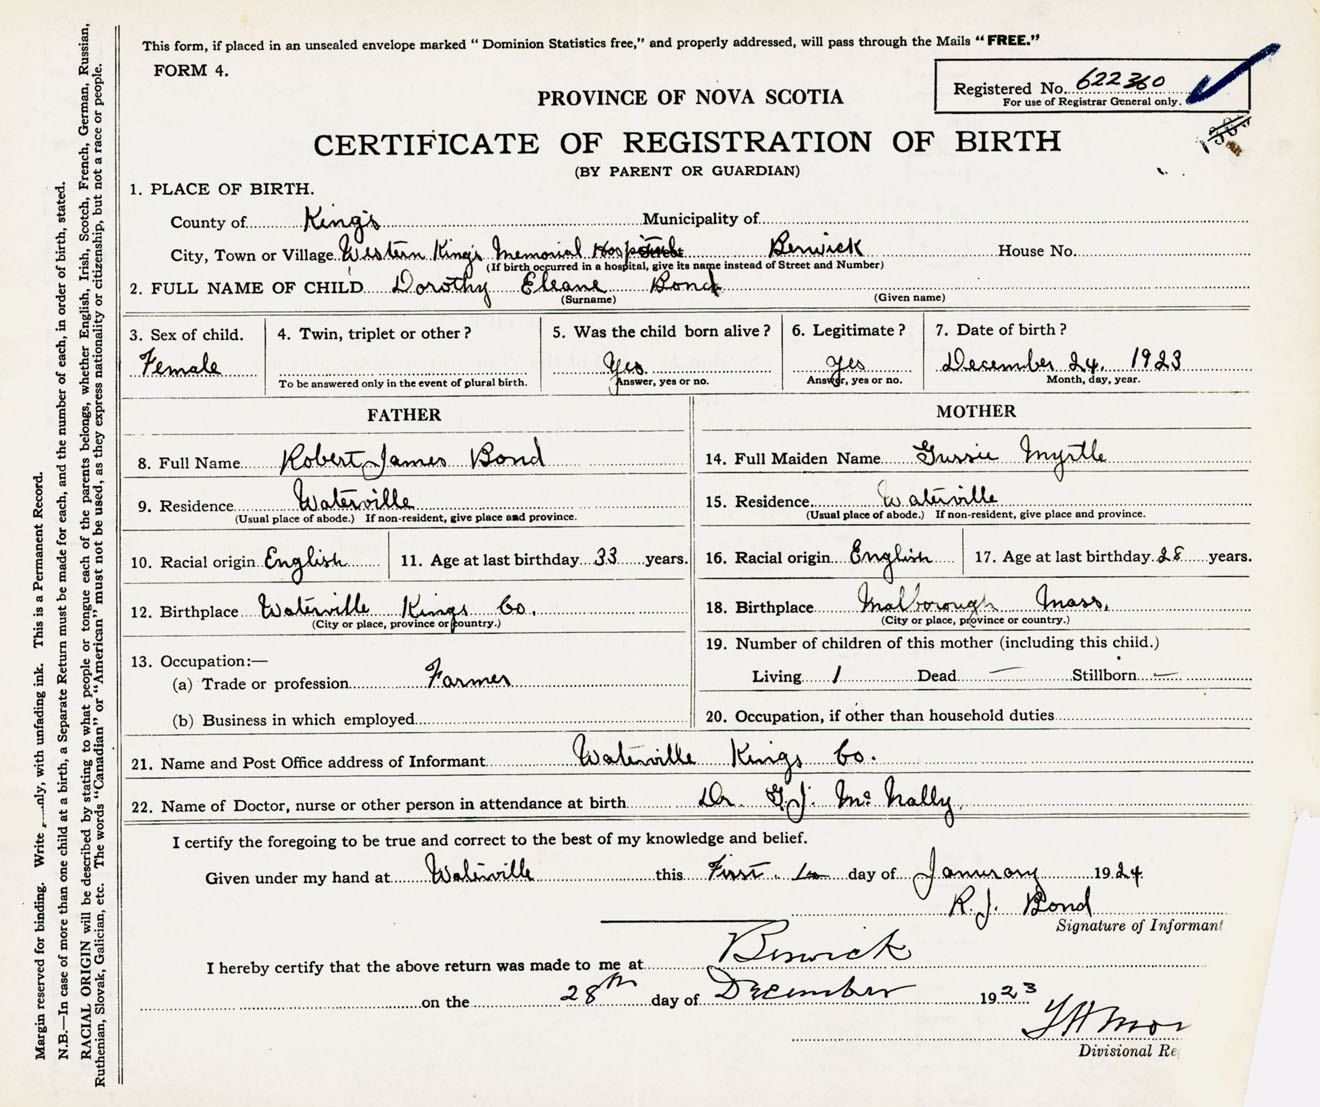 This form, if placed in an unsealed envelope marked " Dominion Statistics free," and properly addressed, will pass through the Mails "FREE."
FORM 4.
Registered No. 622360
For use of Registrar General only.
PROVINCE OF NOVA SCOTIA
CERTIFICATE OF REGISTRATION OF BIRTH
(BY PARENT OR GUARDIAN)
1. PLACE OF BIRTH.
County of King's Municipality of
City, Town or Village Western King's Memorial Hospital Berwick House No.
(If birth occurred in a hospital, give its name instead of Street and Number)
2. FULL NAME OF CHILD Dorothy Eleane Bond
(Surname) (Given name)
3. Sex of child. 4. Twin, triplet or other ? 5. Was the child born alive ? 6. Legitimate ? 7. Date of birth ?
Female Yes Yes December 24, 1923
To be answered only in the event of plural birth. Answer, yes or no. Answer, yes or no. Month, day, year.
FATHER MOTHER
8. Full Name Robert James Bond 14. Full Maiden Name Gussie Myrtle
9. Residence Waterville 15. Residence Waterville
(Usual place of abode.) If non-resident, give place and province. (Usual place of abode.) If non-resident, give place and province.
10. Racial origin English 11. Age at last birthday 33 years. 16. Racial origin English 17. Age at last birthday 28 years.
12. Birthplace Waterville Kings Co. 18. Birthplace Malborough Mass.
(City or place, province or country.) (City or place, province or country.)
19. Number of children of this mother (including this child.)
13. Occupation:—
(a) Trade or profession Farmer Living 1 Dead — Stillborn —
(b) Business in which employed 20. Occupation, if other than household duties
21. Name and Post Office address of Informant Waterville Kings Co.
22. Name of Doctor, nurse or other person in attendance at birth Dr. G.J. McNally
I certify the foregoing to be true and correct to the best of my knowledge and belief.
Given under my hand at Waterville this First day of January 1924
R. J. Bond
Signature of Informant
I hereby certify that the above return was made to me at Berwick
on the 28th day of December 1923
Divisional
Margin reserved for binding. Write with unfading ink. This is a Permanent Record.
N.B.—In case of more than one child at a birth, a Separate Return must be made for each, and the number of each, in order of birth, stated.
RACIAL ORIGIN will be described by stating to what people or tongue each of the parents belongs, whether English, Irish, Scotch, French, German, Russian,
Ruthenian, Slovak, Galician, etc. The words "Canadian" or "American" must not be used, as they express nationality or citizenship, but not a race or people.